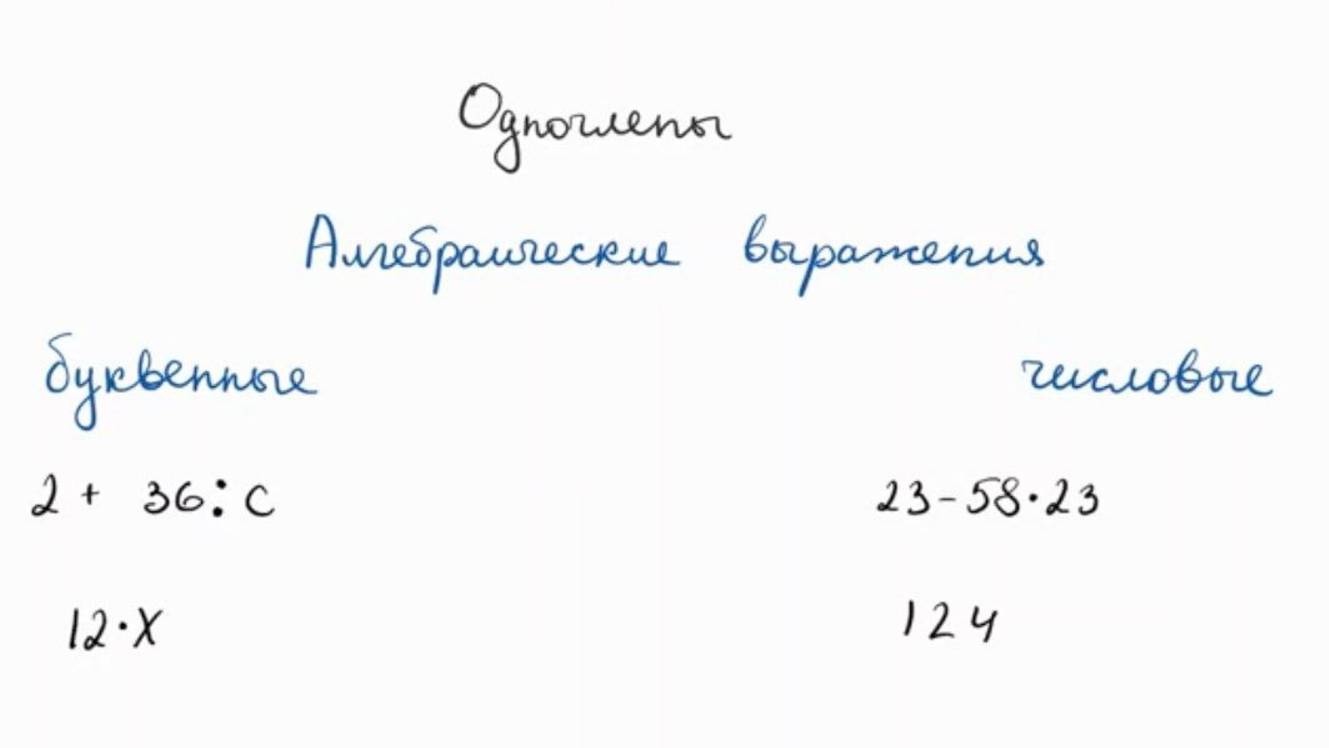 Одночлены
Алгебраические выражения
буквенные числовые
2 + 36 : с 23 - 58 · 23
12 · х 124